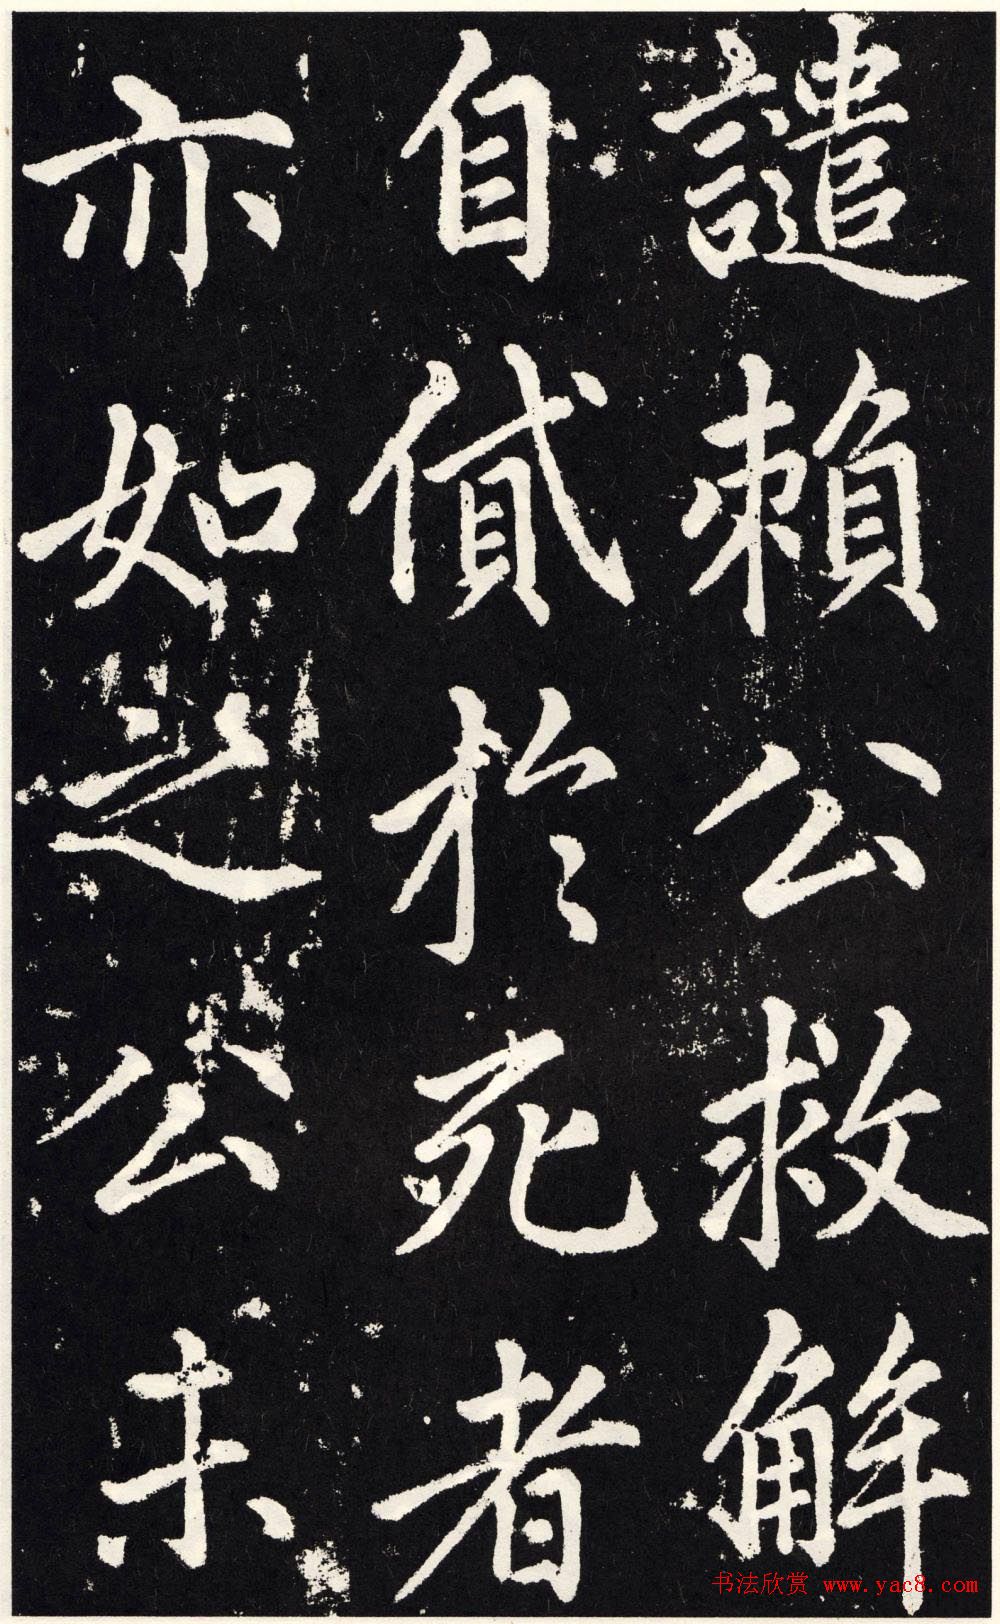 譴賴公救解
自貸於死者
亦如之公未
书法欣赏 www.yac8.com